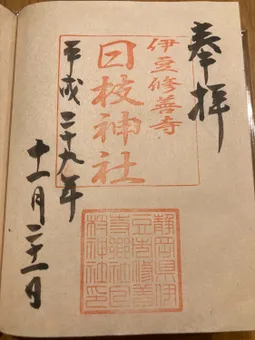 奉拝
伊豆修善寺
日枝神社
平成二十九年
十一月二十一日
静岡県伊
豆市修善
枝神社印